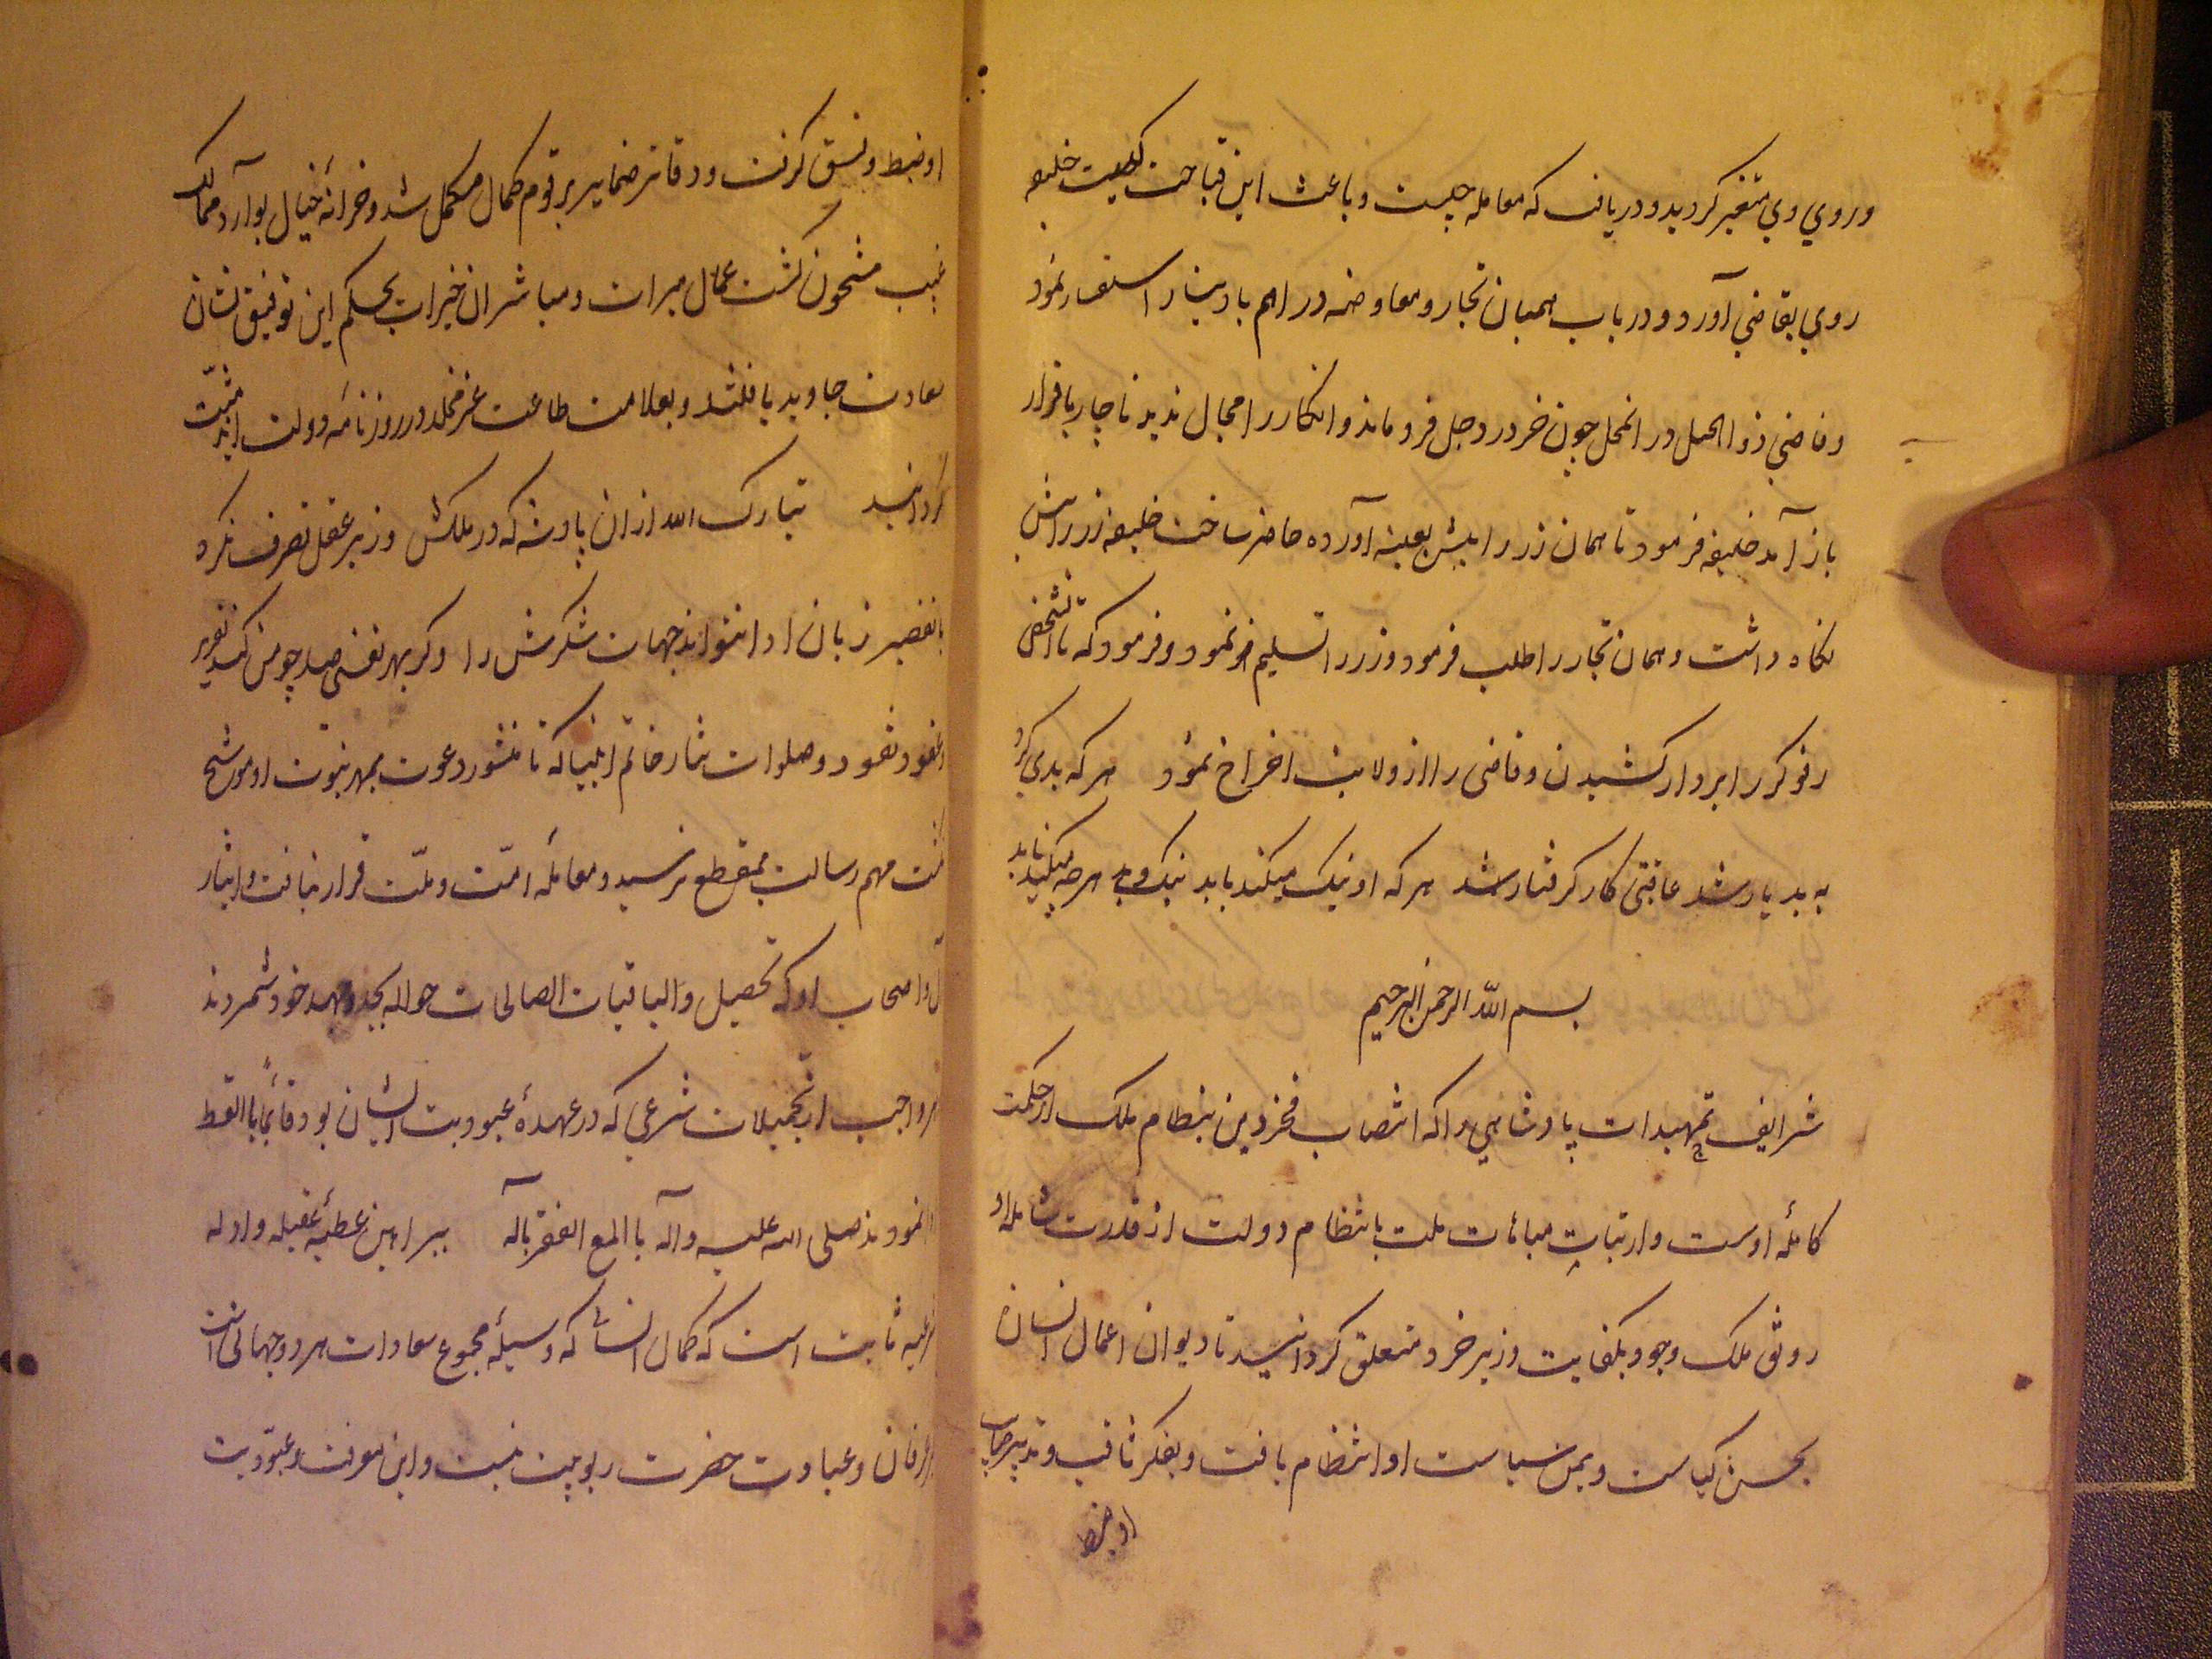 وروي وي متغیر کردید و دریافت که معامله چیست و باعث این قباحت کیست خلیفه
روي بقاضي آورد و در باب همیان تجار و معاوضه دراهم با دینار استفسار نمود
وقاضي ذو الحیل در انمحل چون خر در وحل فرو ماند و انکار را مجال ندید ناچار باقرار
باز آمد خلیفه فرمود تا همان زر را بیش بعینه آورده حاضر ساخت خلیفه زر را پیش
نکاه داشت وهمان تجار را طلب فرمود و زر را تسلیم او نمود و فرمود که تا انشخص
رفوکر را بر دار کشیدن و قاضی را از ولایت اخراج نمود هر که بدی کرد
به بد یار شد عاقبتی کار کرفتار شد هر که او نیک میکند یابد نیک و بد هر چه میکند یابد
بسم الله الرحمن الرحیم
شرایف تمهیدات پادشاهي را که انتصاب فخر دین بنظام ملک از حکمت
کامله اوست و ارتبات مبانات ملت بانتظام دولت از قدرت شامله او
رونق ملک وجود بکفایت وزیر خرد متعلق کردانید تا دیوان اعمال انسان
بحسن کیاست و یمن سیاست او انتظام یافت و بفکر ثاقب و تدبیر صایب
او ضبط
او ضبط و نسق کرفت و دفاتر ضمایر برقوم کمال مکمل شد و خزانه خیال بوارد ممالک
غیب مشحون کشت عمال مبرات و مباشران خیرات بحکم این توفیق نشان
سعادت جاوید یافتند و بعلامت طاعت عز مخلد در روزنامه دولت ابد مثبت
کردانید تبارک الله ازان پادشه که در ملکش وزیر عقل تصرف نکرد
با تقصیر زبان ادا نتواند جهات شکرش را وکر بهر نفسی صد چو من کند تقریر
و عقود نقود و صلوات نثار خاتم انبیا که تا منشور دعوت بمهر نبوت او موشح
کشت مهم رسالت بمقطع نرسید و معامله امت و ملت قرار نیافت و ایثار
آل و اصحاب او که تحصیل والباقیات الصالحات حواله بجد و جهد خود شمردند
و واجب از تحمیلات شرعي که در عهده عبودیت ایشان بود قائما بالقسط
ادا نمودند صلی الله علیه وآله با المع الفقر باله ببراهین عطیه عقلیه و ادله
شرعیه ثابت است که کمال انسان که وسیله مجموع سعادات هر دو جهانی است
عرفان و عبادت حضرت ربوبیت نیست و این معرفت و عبودیت